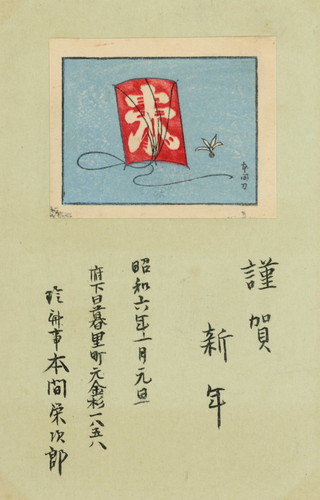 謹賀
新年
昭和六年一月元旦
府下日暮里町元金杉一八五八
事本間栄次郎
本間刀